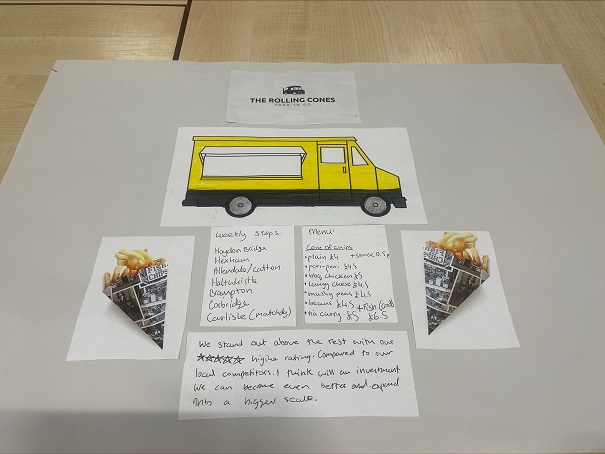 THE ROLLING CONES
FOOD TO GO
Weekly Stops
Haydon Bridge
Hexham
Allendale/Catton
Haltwhistle
Brampton
Corbridge
Carlisle (matchday)
Menu
Cone of chips
• plain £4 + sauce 0.5p
• peri-peri £4.5
• bbq chicken £5
• cheese £4.5
• mushy peas £4.5
• beans £4.5 + Fish (cod)
• curry £5 £6.5
FISH
CHIPS
We stand out above the rest with our
☆☆☆☆☆ rating. Compared to our
local competitors. I think will an investment
we can become even better and expend
into a bigger scale.